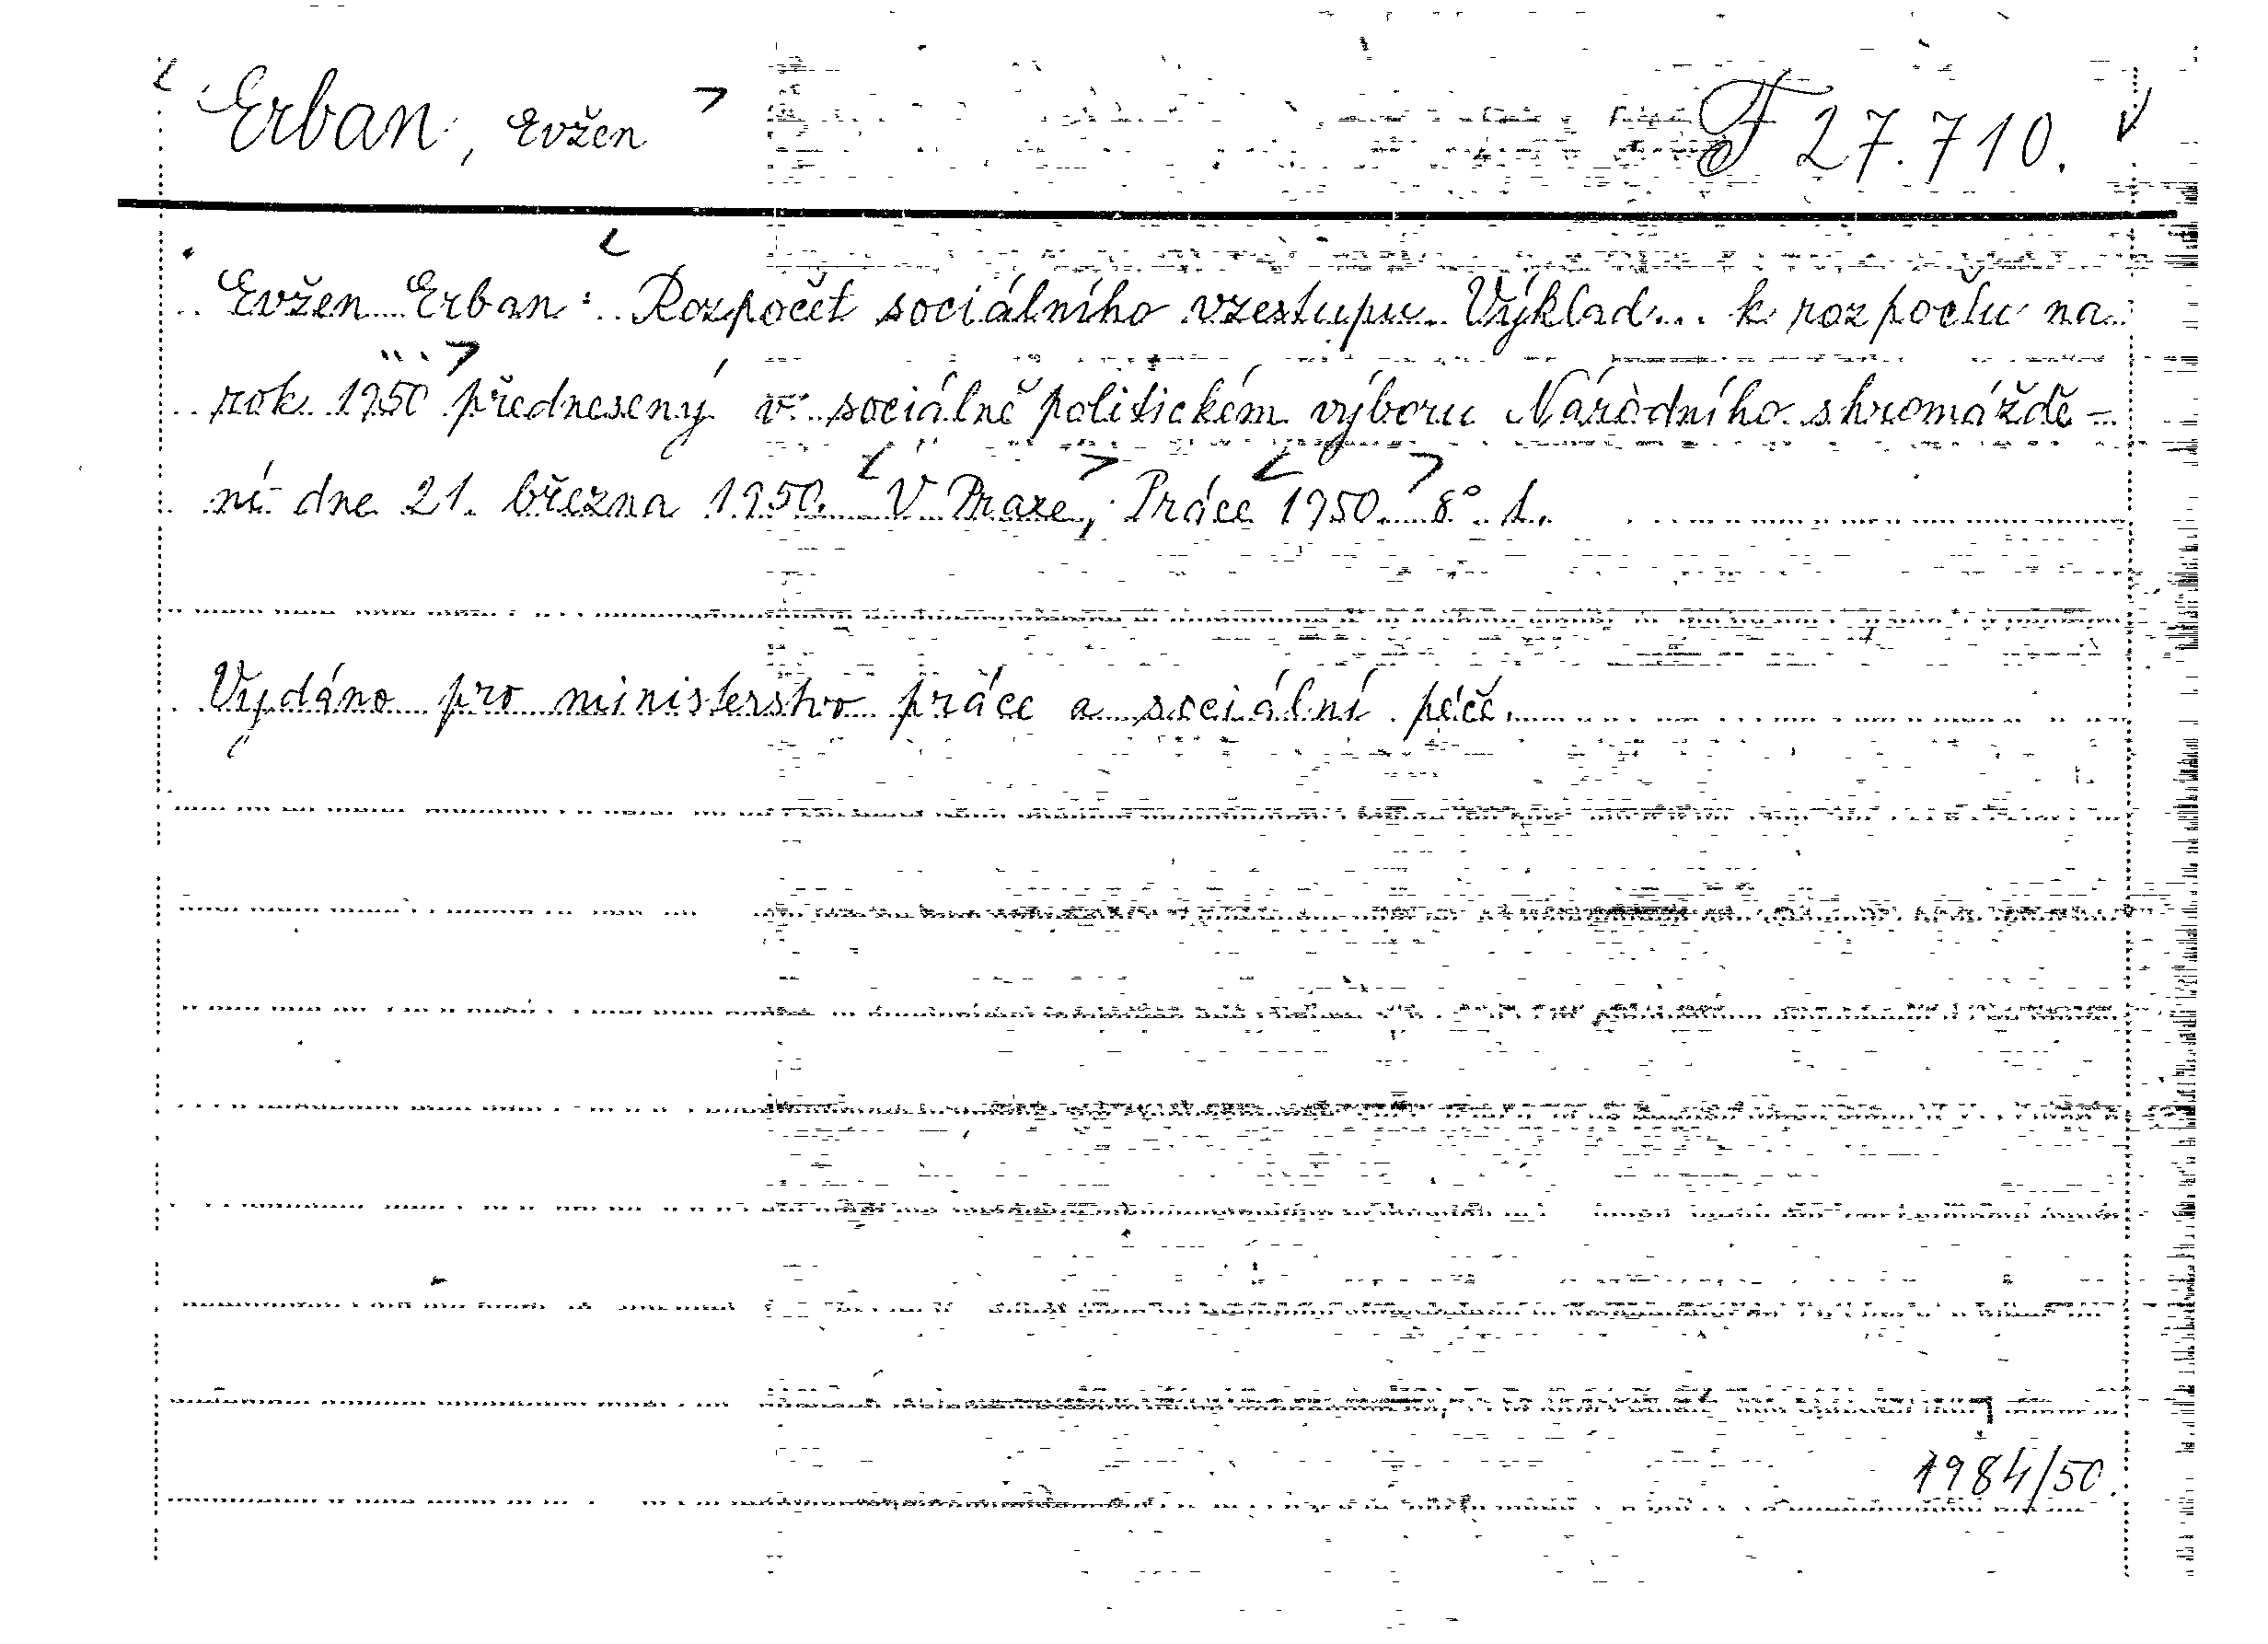 Erban, Evžen F 27.710.
Evžen Erban: Rozpočet sociálního vzestupu. Výklad... k rozpočtu na
rok 1950 přednesený v sociálně politickém výboru Národního shromáždě-
ní dne 21. března 1950. V Praze, Práce 1950. 8°. 1.
Vydáno pro ministerstvo práce a sociální péče.
1984/50.